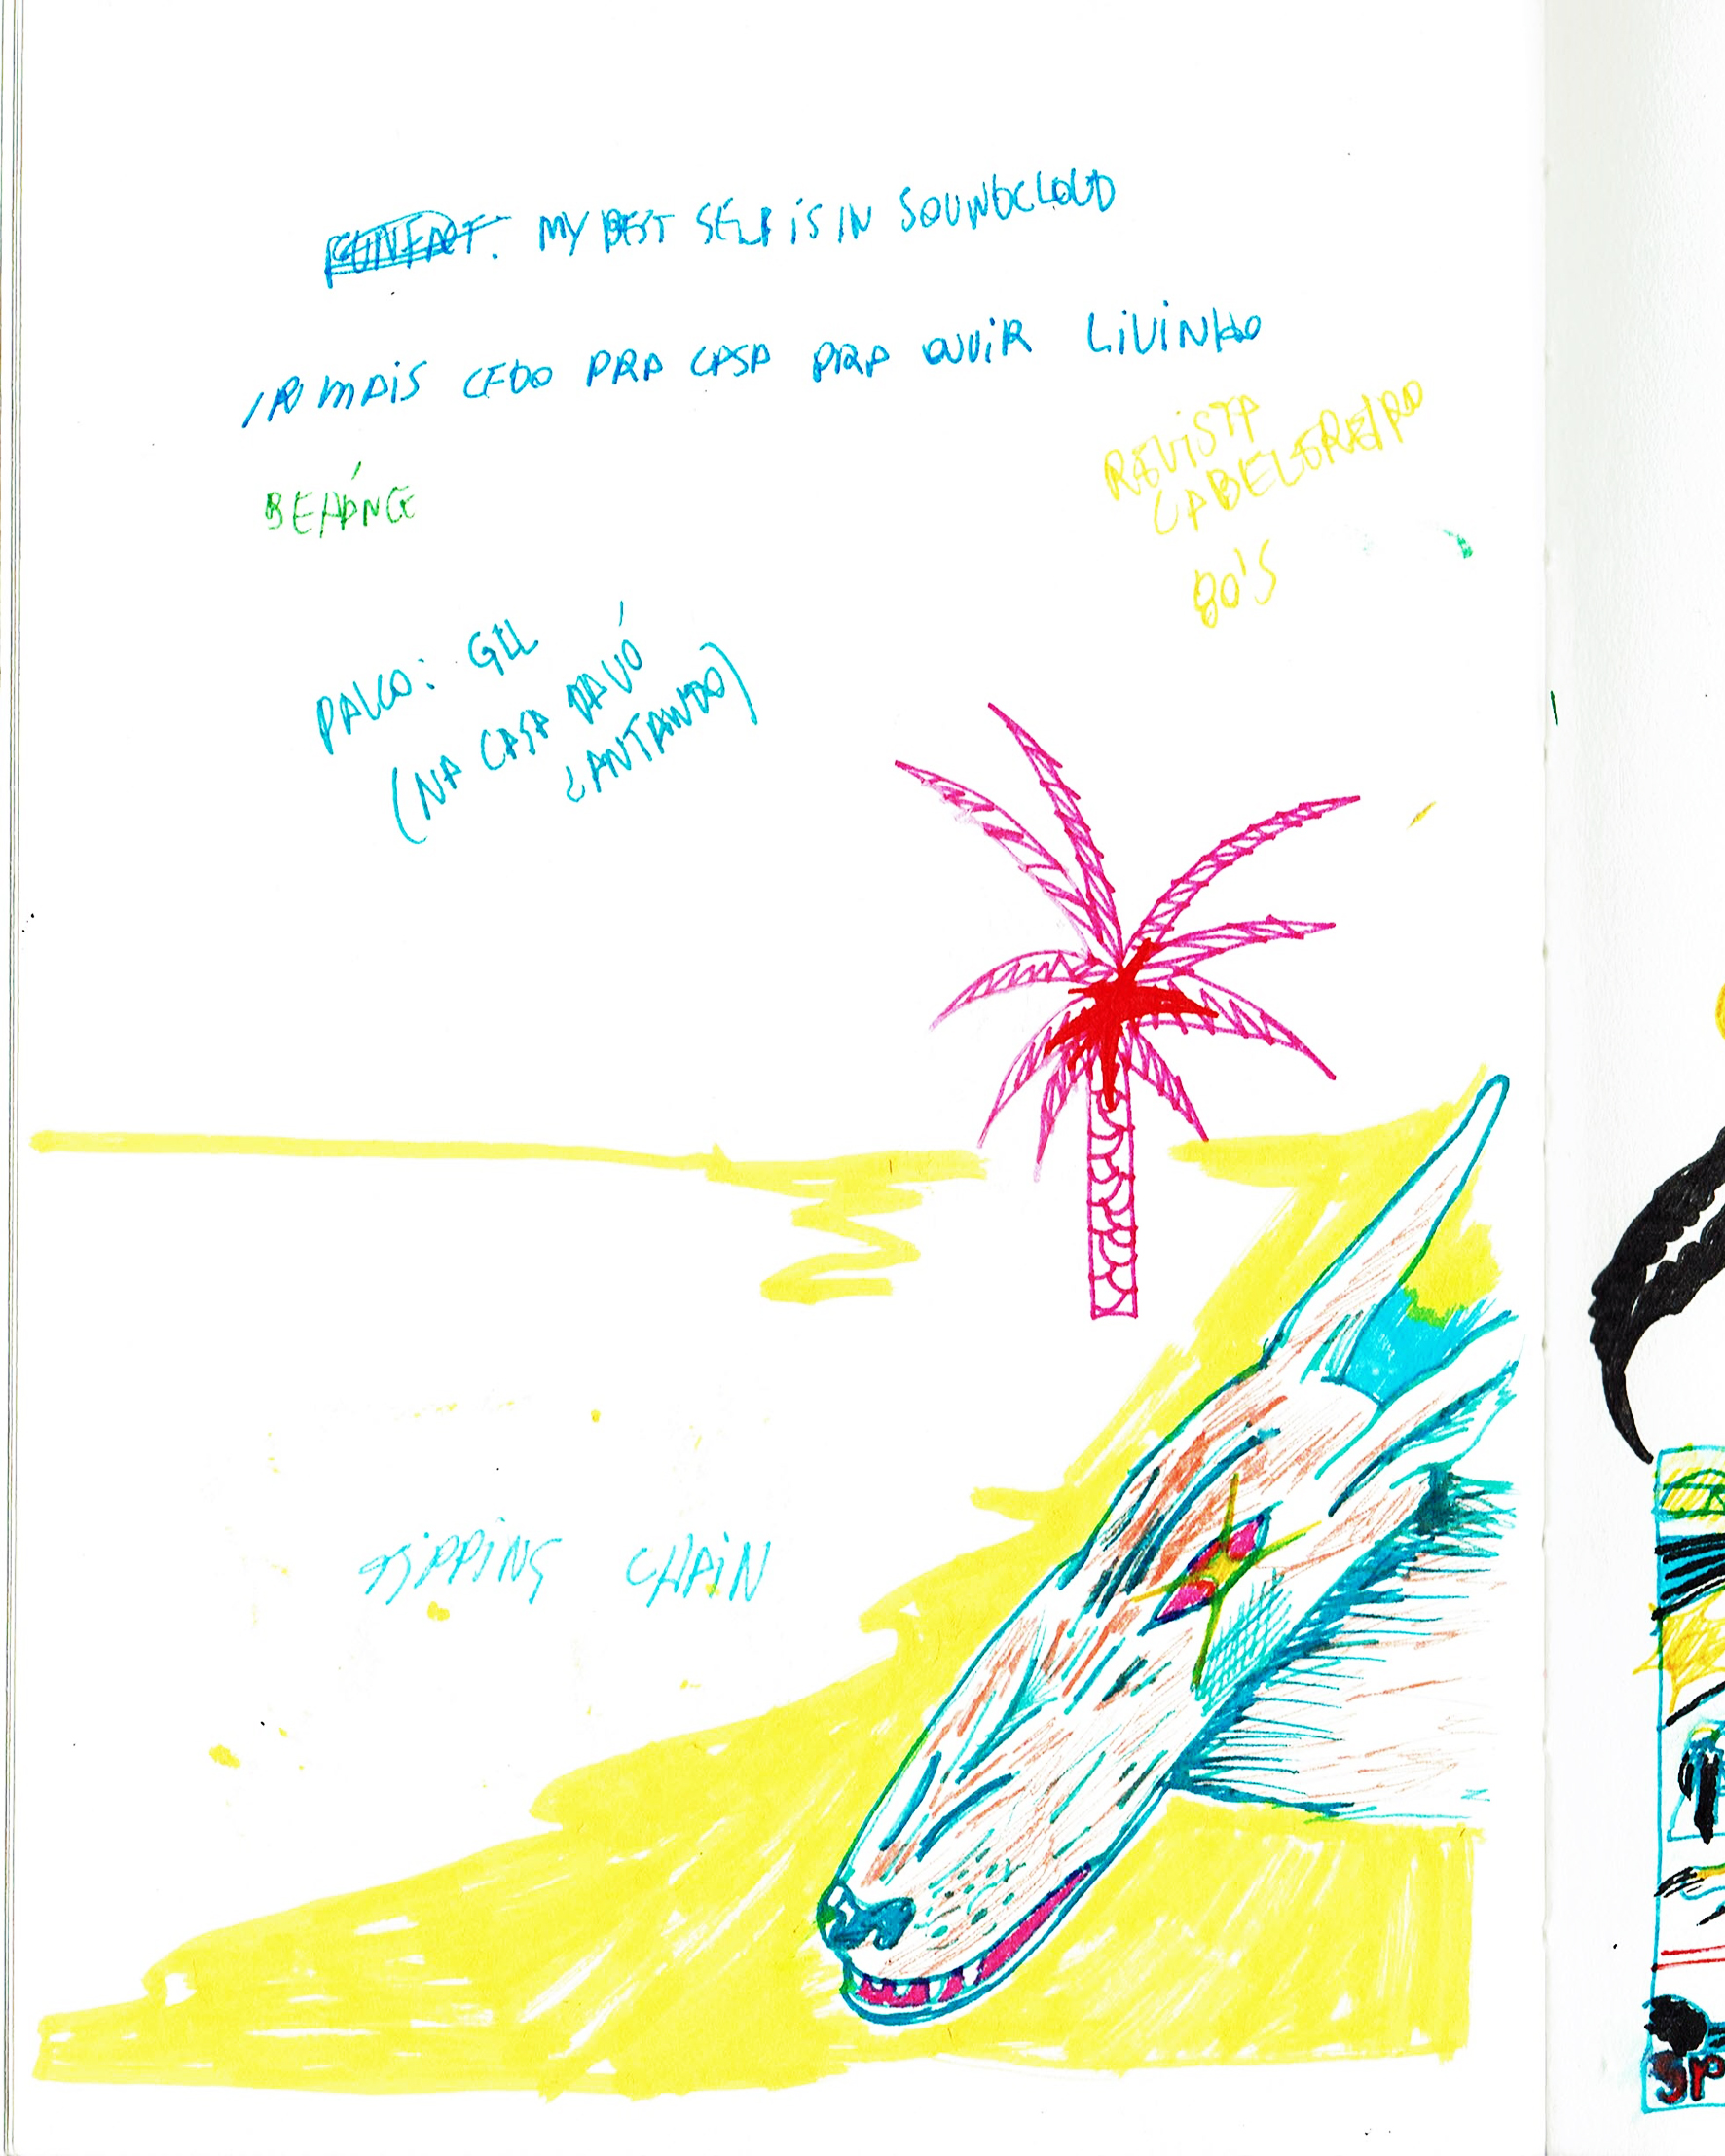 MY BEST SELF IS IN SOUNDCLOUD
IR MAIS CEDO PRA CASA PRA OUVIR LIVINHO
REVISTA
CABELEREIRO
80'S
BEHÁNCE
PALCO: GIL
(NA CASA DA VÓ
CANTANDO)
TIPPING CHAIN
SP